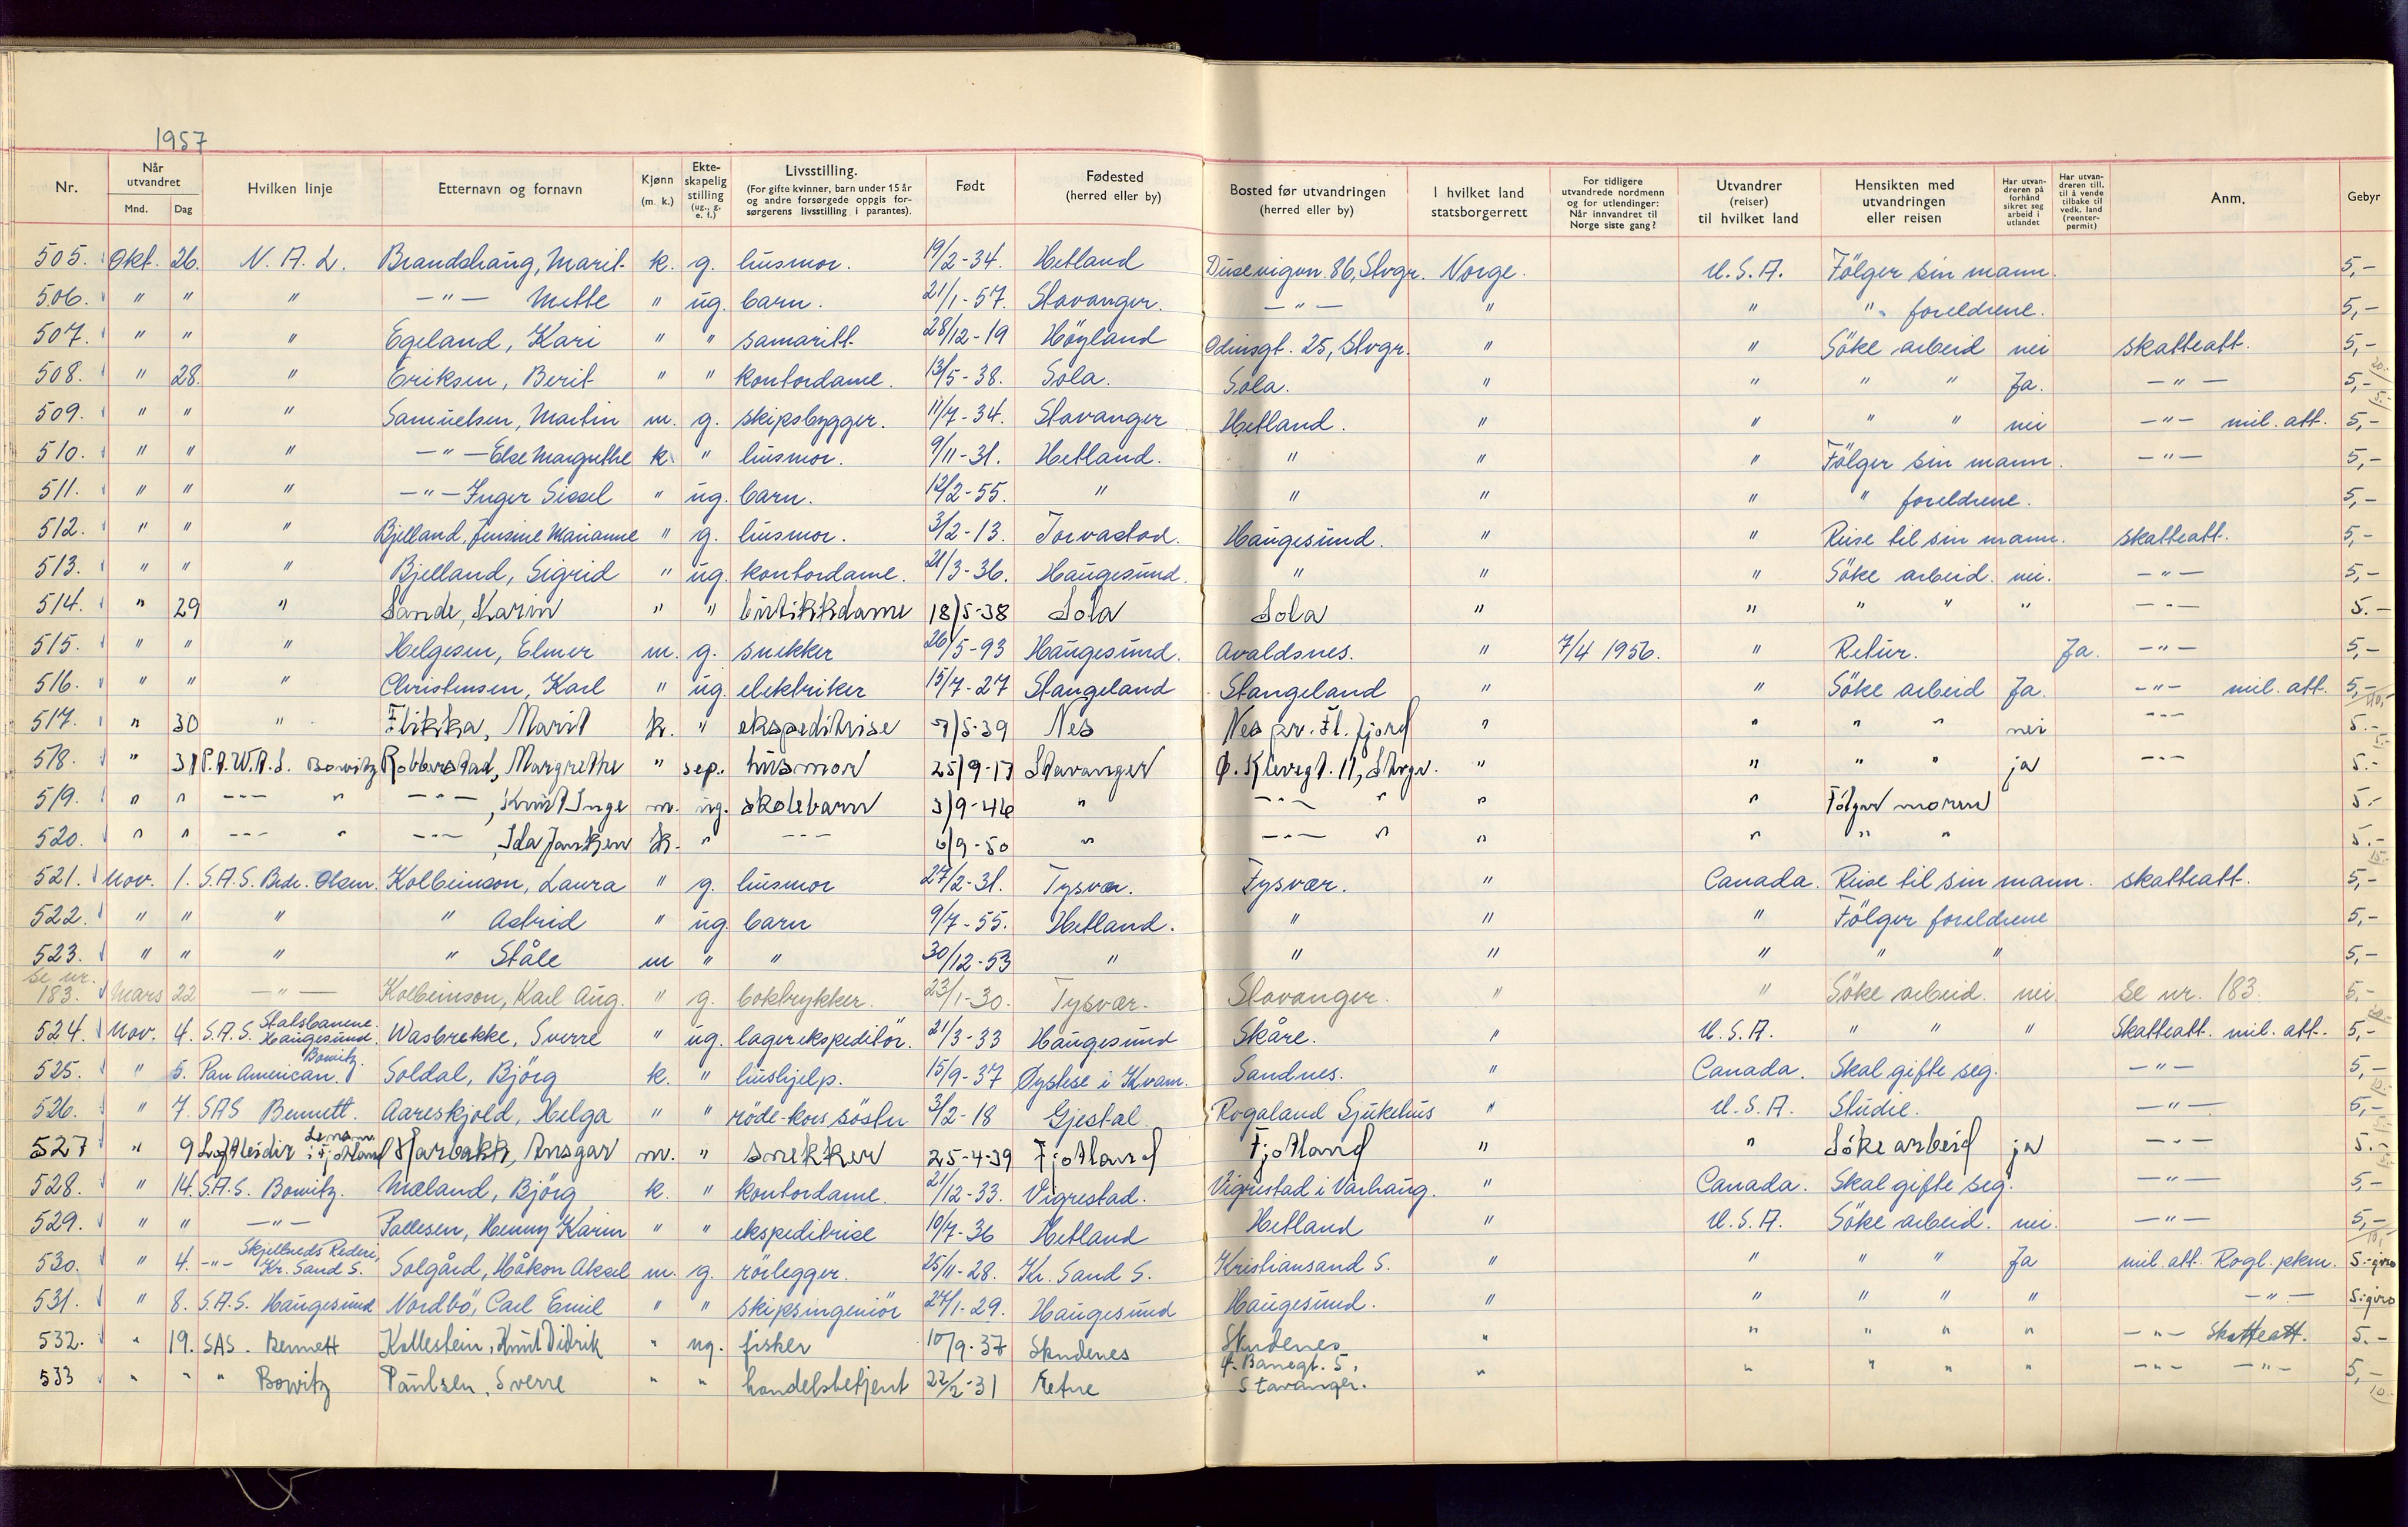 1957
Nr. Når utvandret Mnd. Dag Hvilken linje Etternavn og fornavn Kjønn (m. k.) Ekteskapelig stilling (ug., g. e. f.) Livsstilling. (For gifte kvinner, barn under 15 år og andre forsørgede oppgis forsørgerens livsstilling i parantes). Født Fødested (herred eller by) Bosted før utvandringen (herred eller by) I hvilket land statsborgerrett For tidligere utvandrede nordmenn og for utlendinger: Når innvandret til Norge siste gang? Utvandrer (reiser) til hvilket land Hensikten med utvandringen eller reisen Har utvandreren på forhånd sikret seg arbeid i utlandet Har utvandreren till. til å vende tilbake til vedk. land (reenterpermit) Anm. Gebyr
505. Okt. 26. N. A. L. Brandshaug, Marit k. g. husmor. 19/2-34. Hetland Dusevigvn. 86, Stvgr. Norge. U.S.A. Følger sin mann. 5,-
506. " " " -"- Mette " ug. barn. 21/1-57. Stavanger. -"- " " " foreldrene. 5,-
507. " " " Egeland, Kari " " samaritt 28/12-19 Høyland Odinsgt. 25, Stvgr. " " Söke arbeid nei skatteatt. 5,-
508. " 28. " Eriksen, Berit " " kontordame. 13/5-38. Sola. Sola. " " " " Ja. -"- 5,-
509. " " " Samuelsen, Martin m. g. skipsbygger. 11/7-34. Stavanger Hetland. " " " " nei -"- mil. att. 5,-
510. " " " -"- Else Margrethe k. " husmor. 9/11-31. Hetland. " " " Følger sin mann. -"- 5,-
511. " " " -"- Inger Sissel " ug. barn. 12/2-55. " " " " " foreldrene. 5,-
512. " " " Bjelland, Jensine Marianne " g. husmor. 3/2-13. Torvastad. Haugesund. " " Reise til sin mann. skatteatt. 5,-
513. " " " Bjelland, Sigrid " ug. kontordame. 21/3-36. Haugesund. " " " Söke arbeid. nei. -"- 5,-
514. " 29 " Sande, Karin " " butikkdame 18/5-38 Sola Sola " " " " " -"- 5.-
515. " " " Helgesen, Elmer m. g. snekker 26/5-93 Haugesund. Avaldsnes. " 7/4 1956. " Retur. Ja. -"- 5,-
516. " " " Christensen, Karl " ug. elektriker 15/7-27 Stangeland Stangeland " " Söke arbeid Ja. -"- mil. att. 5,-
517. " 30 " Flikka, Marit k. " ekspeditrise 7/5-39 Nes Nes pr. Fl. fjord " " " " nei -"- 5.-
518. " 31 P.A.W.A.S. Bowitz Robberstad, Margrethe " sep. husmor 25/9-17 Stavanger Ø. Klevegt. 11, Stvgr. " " " " ja -"- 5.-
519. " " -"- " -"-, Knut Inge m. ug. skolebarn 3/9-46 " -"- " " " Følger moren 5.-
520. " " -"- " -"-, Ida k. " -"- 6/9-50 " -"- " " " " " 5.-
521. Nov. 1. S.A.S. Brdr. Olsen. Kolbeinson, Laura " g. husmor 27/2-31. Tysvær. Tysvær. " Canada. Reise til sin mann. skatteatt. 5,-
522. " " " " Astrid " ug barn 9/7-55. Hetland. " " " Følger foreldrene 5,-
523. " " " " Ståle m " " 30/12-53 " " " " " " 5,-
se nr. 183. Mars 22 -"- Kolbeinson, Karl Aug. " g. boktrykker. 23/1-30. Tysvær. Stavanger. " " Söke arbeid. nei se nr. 183. 5,-
524. Nov. 4. S.A.S. Statsbanene. Haugesund. Wasbrekke, Sverre " ug. lagerekspeditör. 21/3-33 Haugesund Skåre. " U.S.A. " " " Skatteatt. mil. att. 5,-
525. " 5. Pan American. Bowitz. Soldal, Björg k. " hushjelp. 15/9-37 Øystese i Kvam. Sandnes. " Canada. Skal gifte seg. -"- 5,-
526. " 7. SAS Bennett. Aareskjold, Helga " " röde-kors söster 3/2-18 Gjestal. Rogaland Sjukehus " U.S.A. Studie. -"- 5,-
527 " 9 Lensm. i Fjotland Harbakk, Ansgar m. " snekker 25-4-39 Fjotland Fjotland " " Söke arbeid ja -"- 5.-
528. " 14. S.A.S. Bowitz. Mæland, Björg k. " kontordame. 21/12-33. Vigrestad. Vigrestad i Varhaug. " Canada. Skal gifte seg. -"- 5,-
529. " " -"- Pallesen, Henny Karin " " ekspeditrise 10/7-36 Hetland Hetland " U.S.A. Söke arbeid. nei. -"- 5,-
530. " 4. -"- Skjelbreds Rederi, Kr. Sand S. Solgård, Håkon Aksel m. g. rörlegger. 25/11-28. Kr. Sand S. Kristiansand S. " " " " Ja mil. att. Rogl. pkm. 5.- giro
531. " 8. S.A.S. Haugesund Nordbö, Carl Emil " " skipsingeniör 27/1-29. Haugesund Haugesund. " " " " " -"- 5.- giro
532. " 19. SAS. Bennett Kallestein, Knut Didrik " ug. fisker 10/9-37 Skudenes Skudenes " " " " " -"- Skatteatt. 5.-
533 " " " Bowitz Paulsen, Sverre " " handelsbetjent 22/2-31 Etne Ø. Banegt. 5, Stavanger. " " " " " -"- -"- 5,-